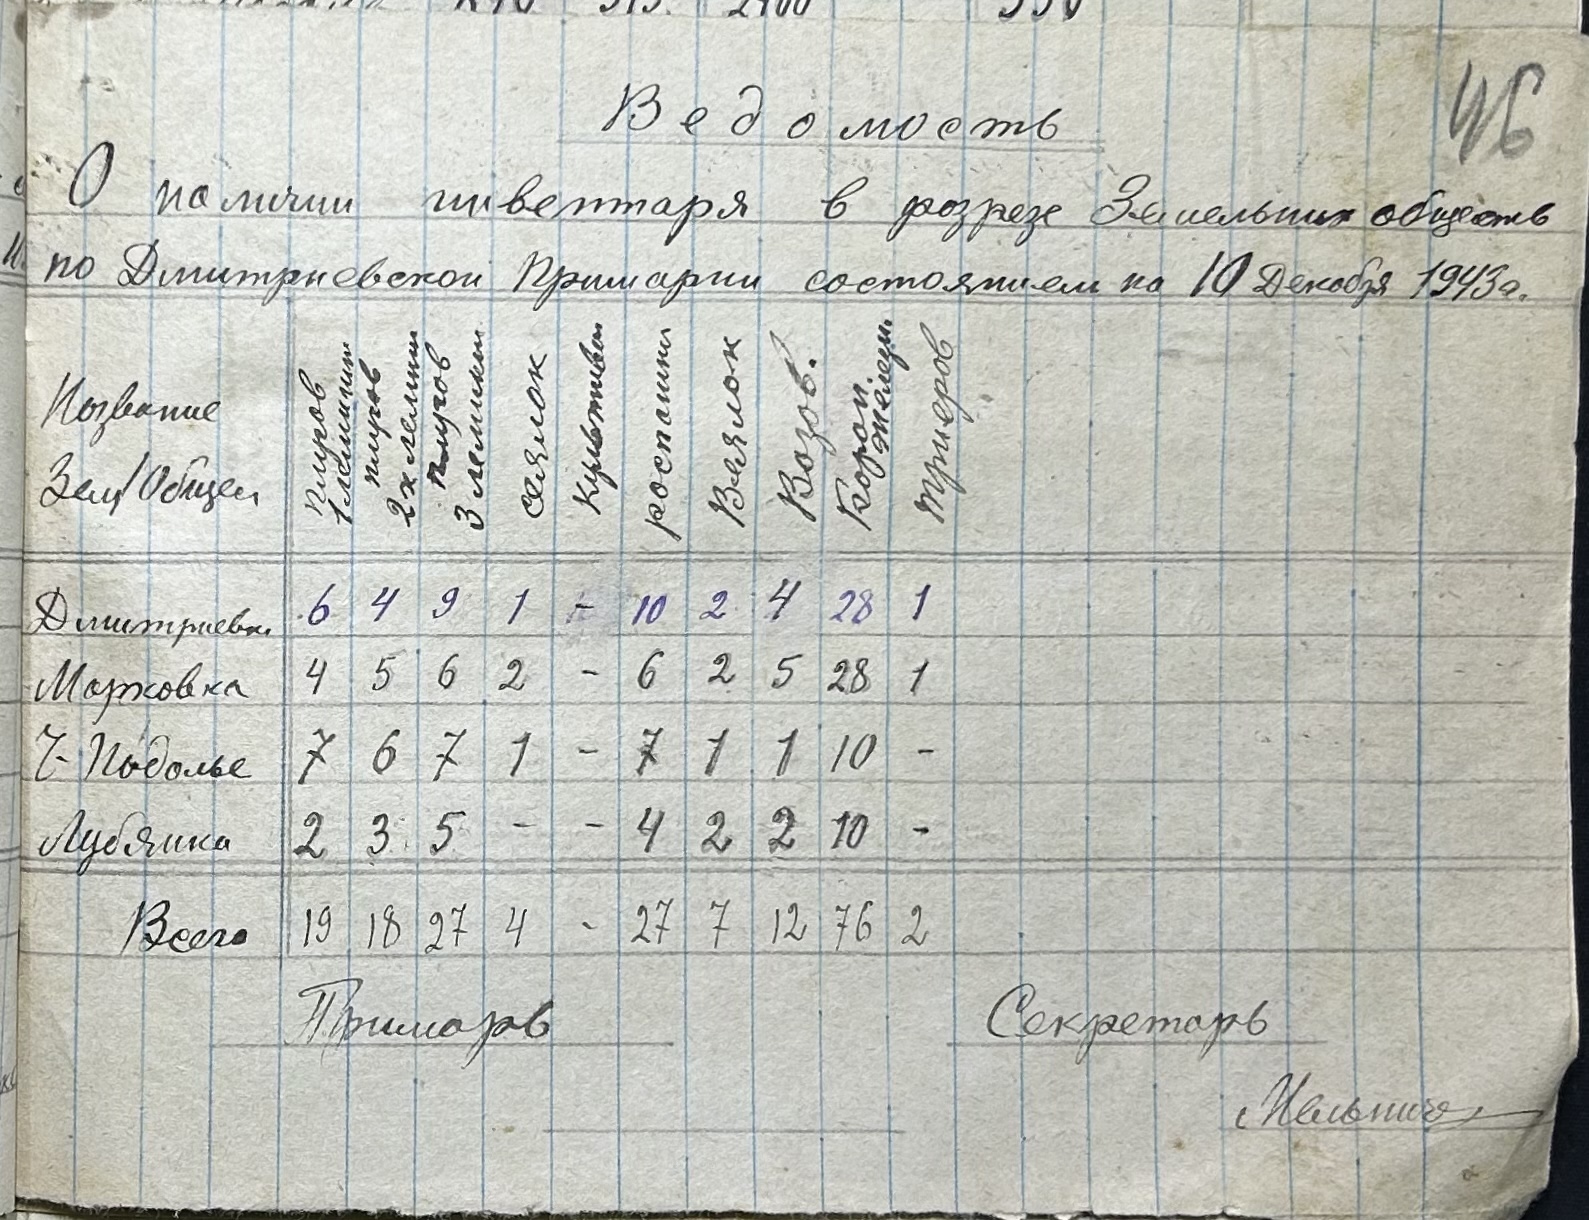 46
Ведомость
О наличии инвентаря в розрезе Земельних обществ
по Дмитриевской Примарии состоянием на 10 Декабря 1943г.
Название Зем/Общел плугов 1 лемишн плугов 2х лемиш плугов 3 лемишн сеялок Культиват роспашни Веялок Возов. Борон железн. триеров
Дмитриевка 6 4 9 1 - 10 2 4 28 1
Марковка 4 5 6 2 - 6 2 5 28 1
Ч-Подолье 7 6 7 1 - 7 1 1 10 -
Лубянка 2 3 5 - - 4 2 2 10 -
Всего 19 18 27 4 - 27 7 12 76 2
Примарь Секретарь